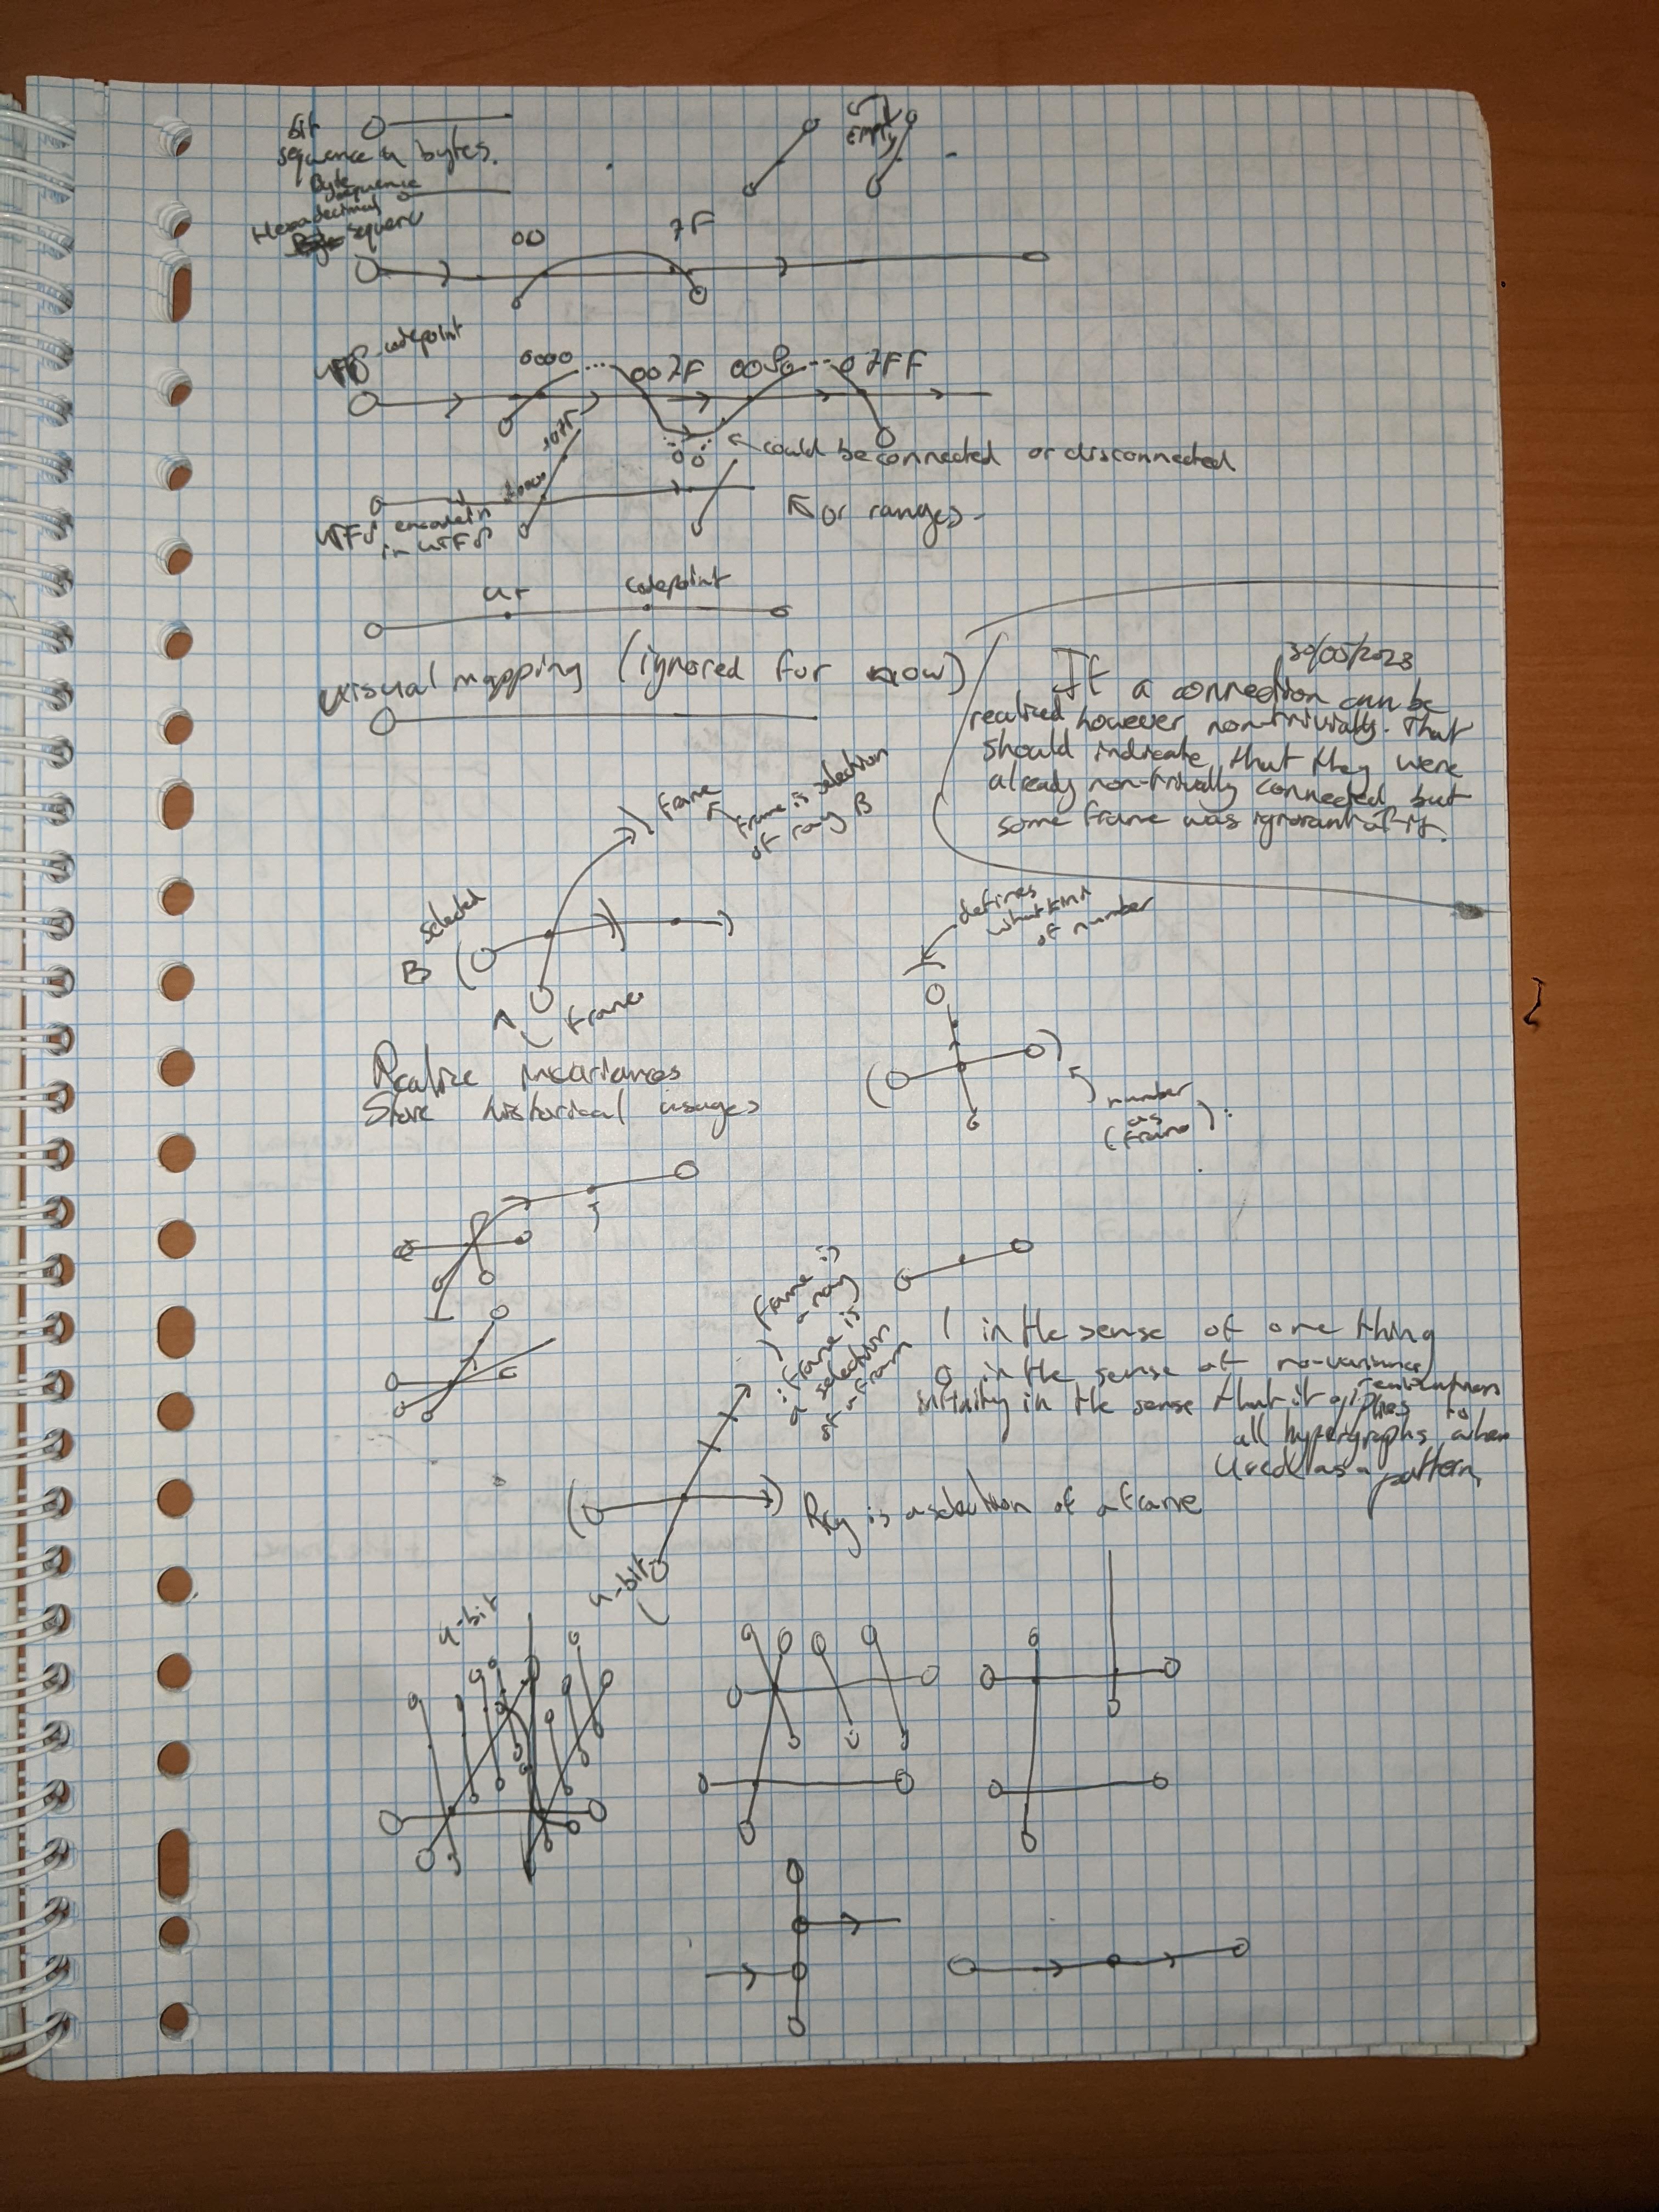 bit
sequence u bytes.
Byte
sequence
Hexadecimal
sequence
empty
00 7F
UTF8 codepoint
0000 ... 007F 0080 ... 07FF
007F
0000
could be connected or disconnected
or ranges.
UTF8 encoded in
in UTF8
codepoint
visual mapping (ignored for now)
30/05/2023
If a connection can be
realized however non-trivially. That
should indicate that they were
already non-trivially connected but
some frame was ignorant of it.
Frame
Frame is selection
of ray B
selected
B
Frame
defines
what kind
of number
number
as
(Frame)
Realize invariances
Store historical usages
Frame is
a ray
Frame is
a selection
of a Frame
1 in the sense of one thing
0 in the sense of no-variance
infinity in the sense that it applies to
all hypergraphs when
used as a pattern
Ray is a selection of a Frame
4-bit
4-bit